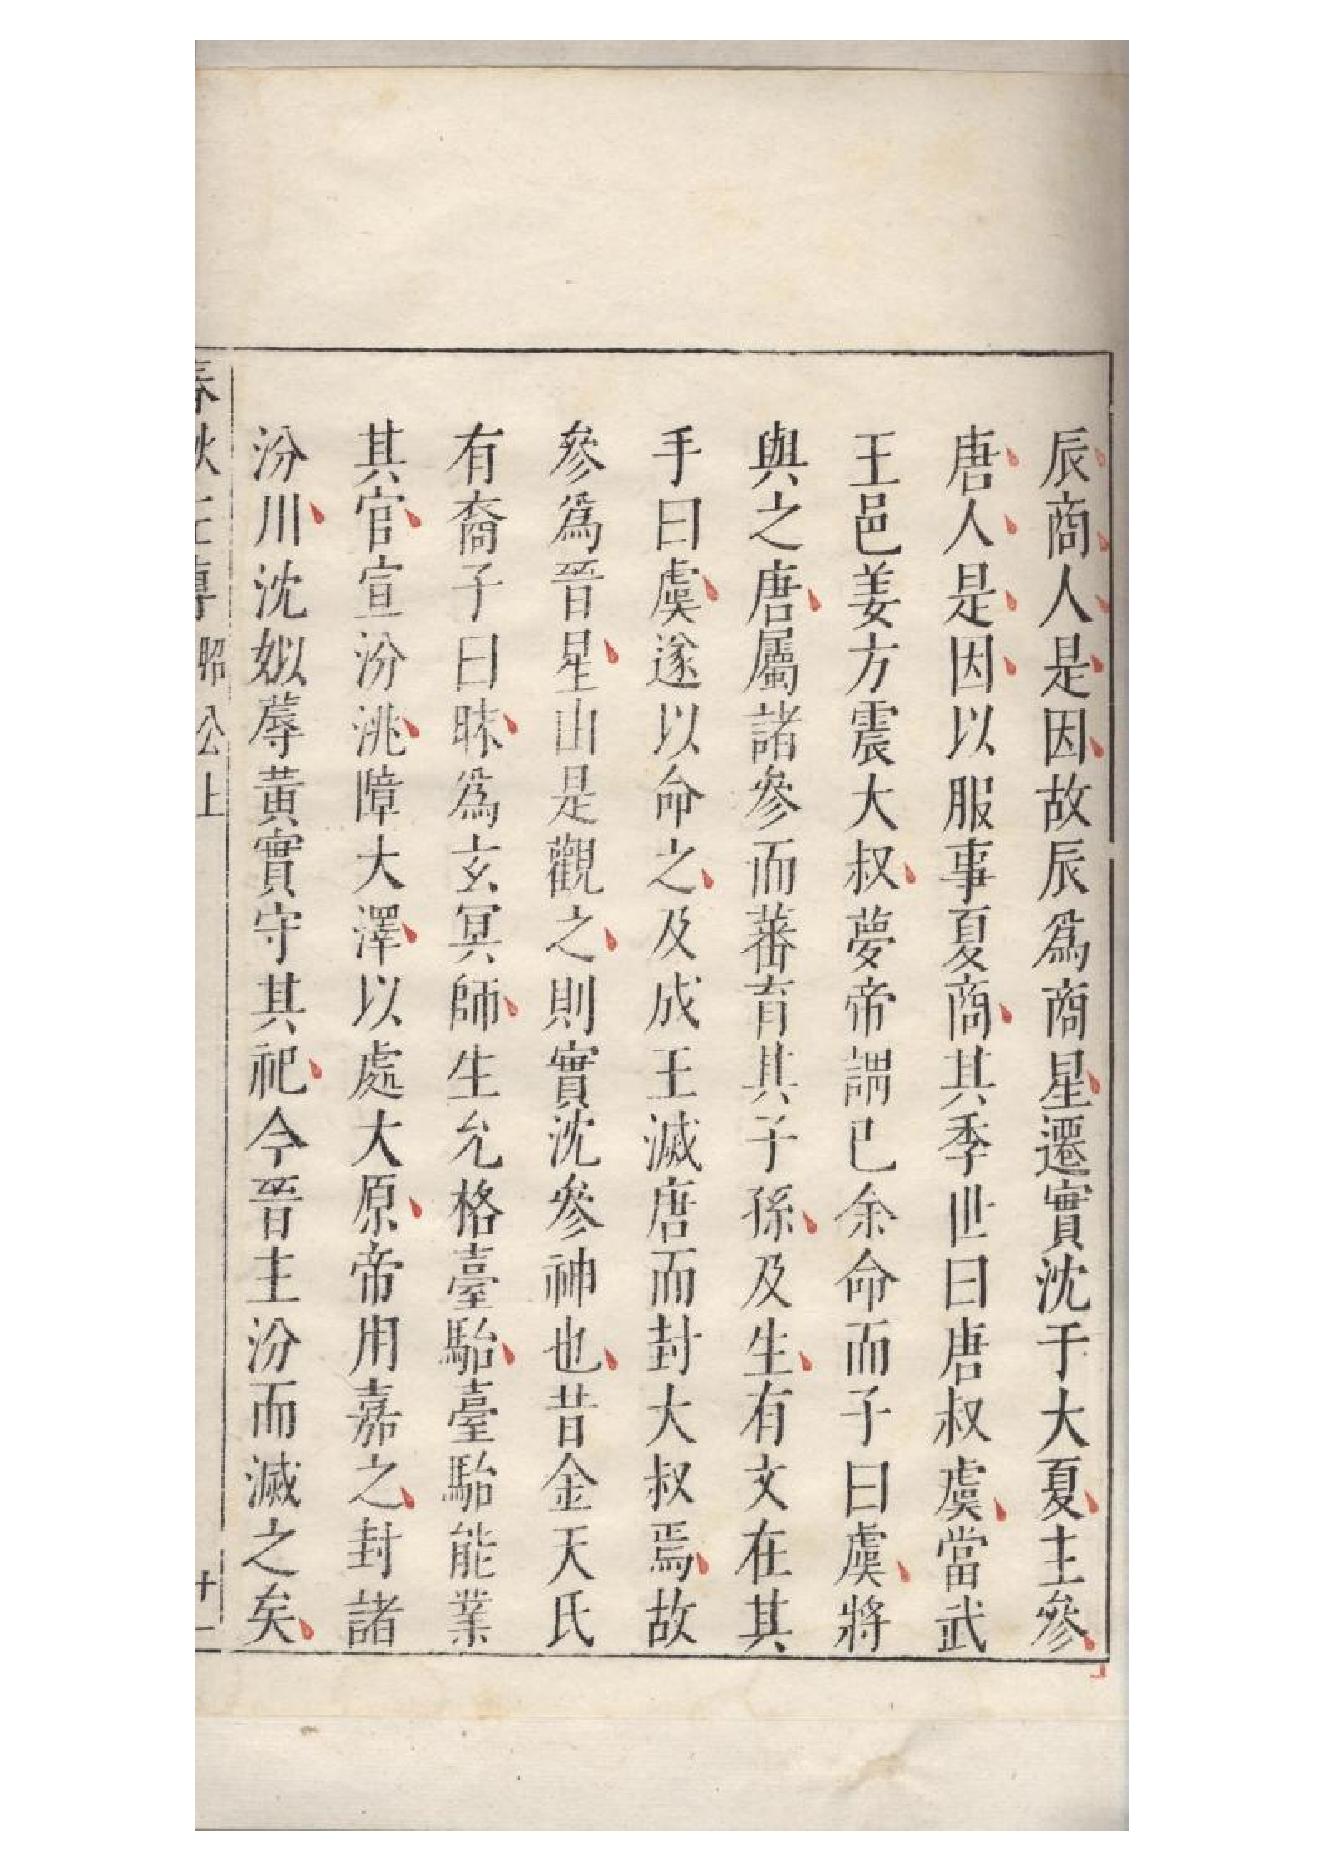 辰商人是因故辰爲商星遷實沈于大夏主參
唐人是因以服事夏商其季世曰唐叔虞當武
王邑姜方震大叔夢帝謂已余命而子曰虞將
與之唐屬諸參而蕃育其子孫及生有文在其
手曰虞遂以命之及成王滅唐而封大叔焉故
參爲晉星山是觀之則實沈參神也昔金天氏
有裔子曰昧爲玄冥師生允格臺駘臺駘能業
其官宣汾洮障大澤以處大原帝用嘉之封諸
汾川沈姒蓐黃實守其祀今晉主汾而滅之矣
春秋左傳 昭公上 廿一